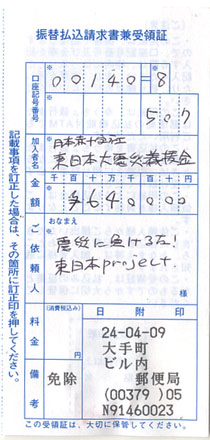 振替払込請求書兼受領証
口座記号番号
00140=8
507
加入者名
日本赤十字社
東日本大震災義援金
金額
千百十万千百十円
¥640000
おなまえ
ご依頼人
震災に負けるな!
東日本project.
様
料金
(消費税込み)
日附印
24-04-09
大手町
ビル内
郵便局
(00379 )05
N91460023
備考
免除
記載事項を訂正した場合は、その箇所に訂正印を押してください。
この受領証は、大切に保管してください。